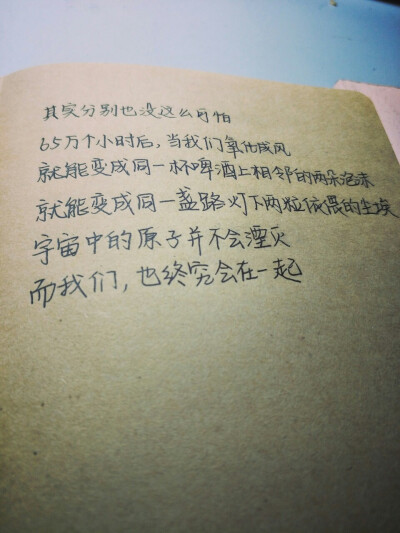 其实分别也没这么可怕
65万个小时后，当我们氧化成风
就能变成同一杯啤酒上相邻的两朵泡沫
就能变成同一盏路灯下两粒依偎的尘埃
宇宙中的原子并不会湮灭
而我们，也终究会在一起